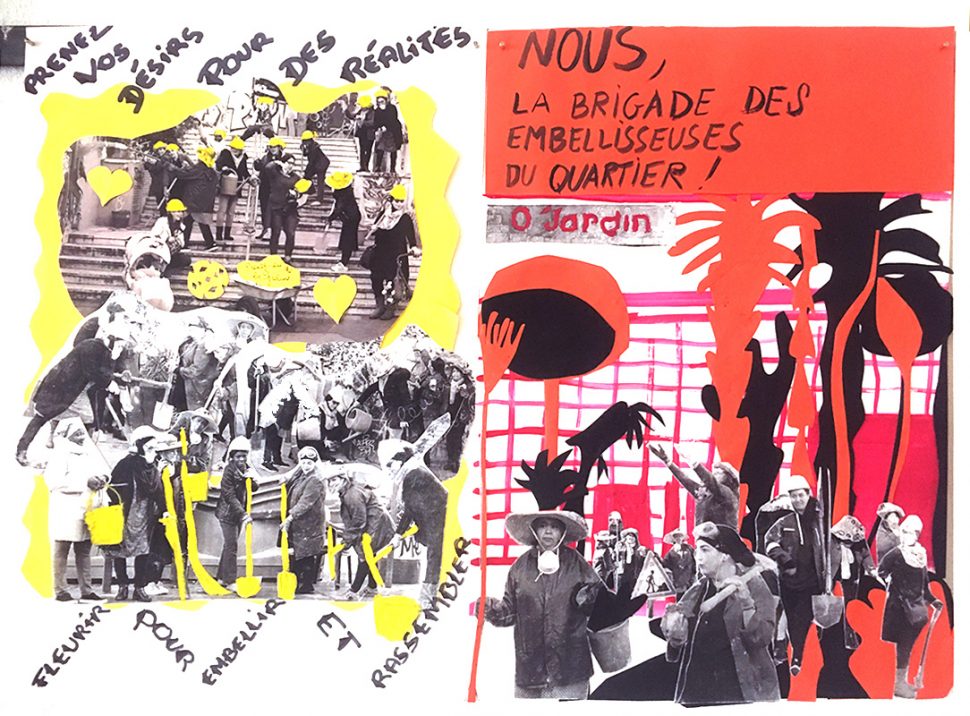 PRENEZ VOS DÉSIRS POUR DES RÉALITÉS.
FLEURIR POUR EMBELLIR ET RASSEMBLER
NOUS,
LA BRIGADE DES
EMBELLISSEUSES
DU QUARTIER !
O'Jardin